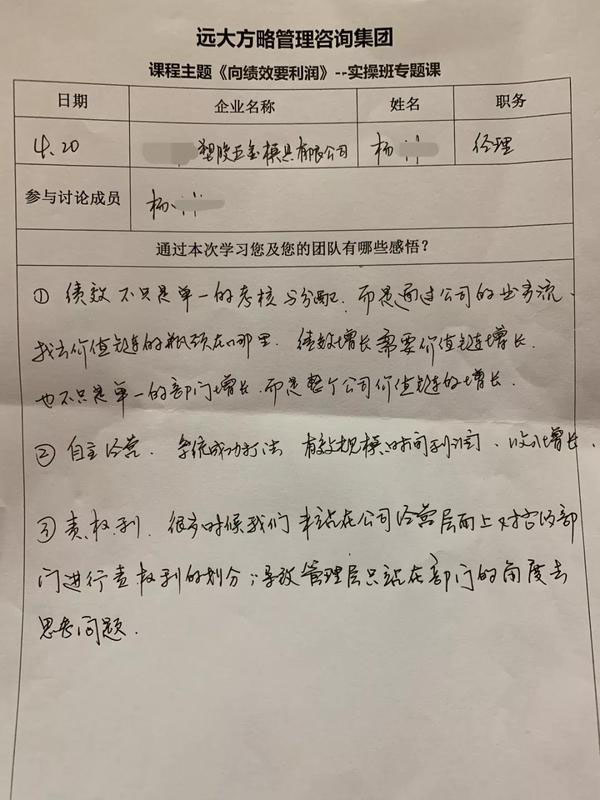 远大方略管理咨询集团
课程主题《向绩效要利润》--实操班专题课
日期 企业名称 姓名 职务
4.20 塑胶五金模具有限公司 杨 经理
参与讨论成员 杨
通过本次学习您及您的团队有哪些感悟？
① 绩效不只是单一的考核与分配.而是通过公司的业务流.
找出价值链的瓶颈在哪里.绩效增长需要价值链增长.
也不只是单一的部门增长.而是整个公司价值链的增长.
② 自主经营.系统成功打法 有效规模时间利润、收入增长.
③ 责权利.很多时候我们未站在公司经营层面上对各的部
门进行责权利的划分;导致管理层只站在部门的角度去
思考问题.